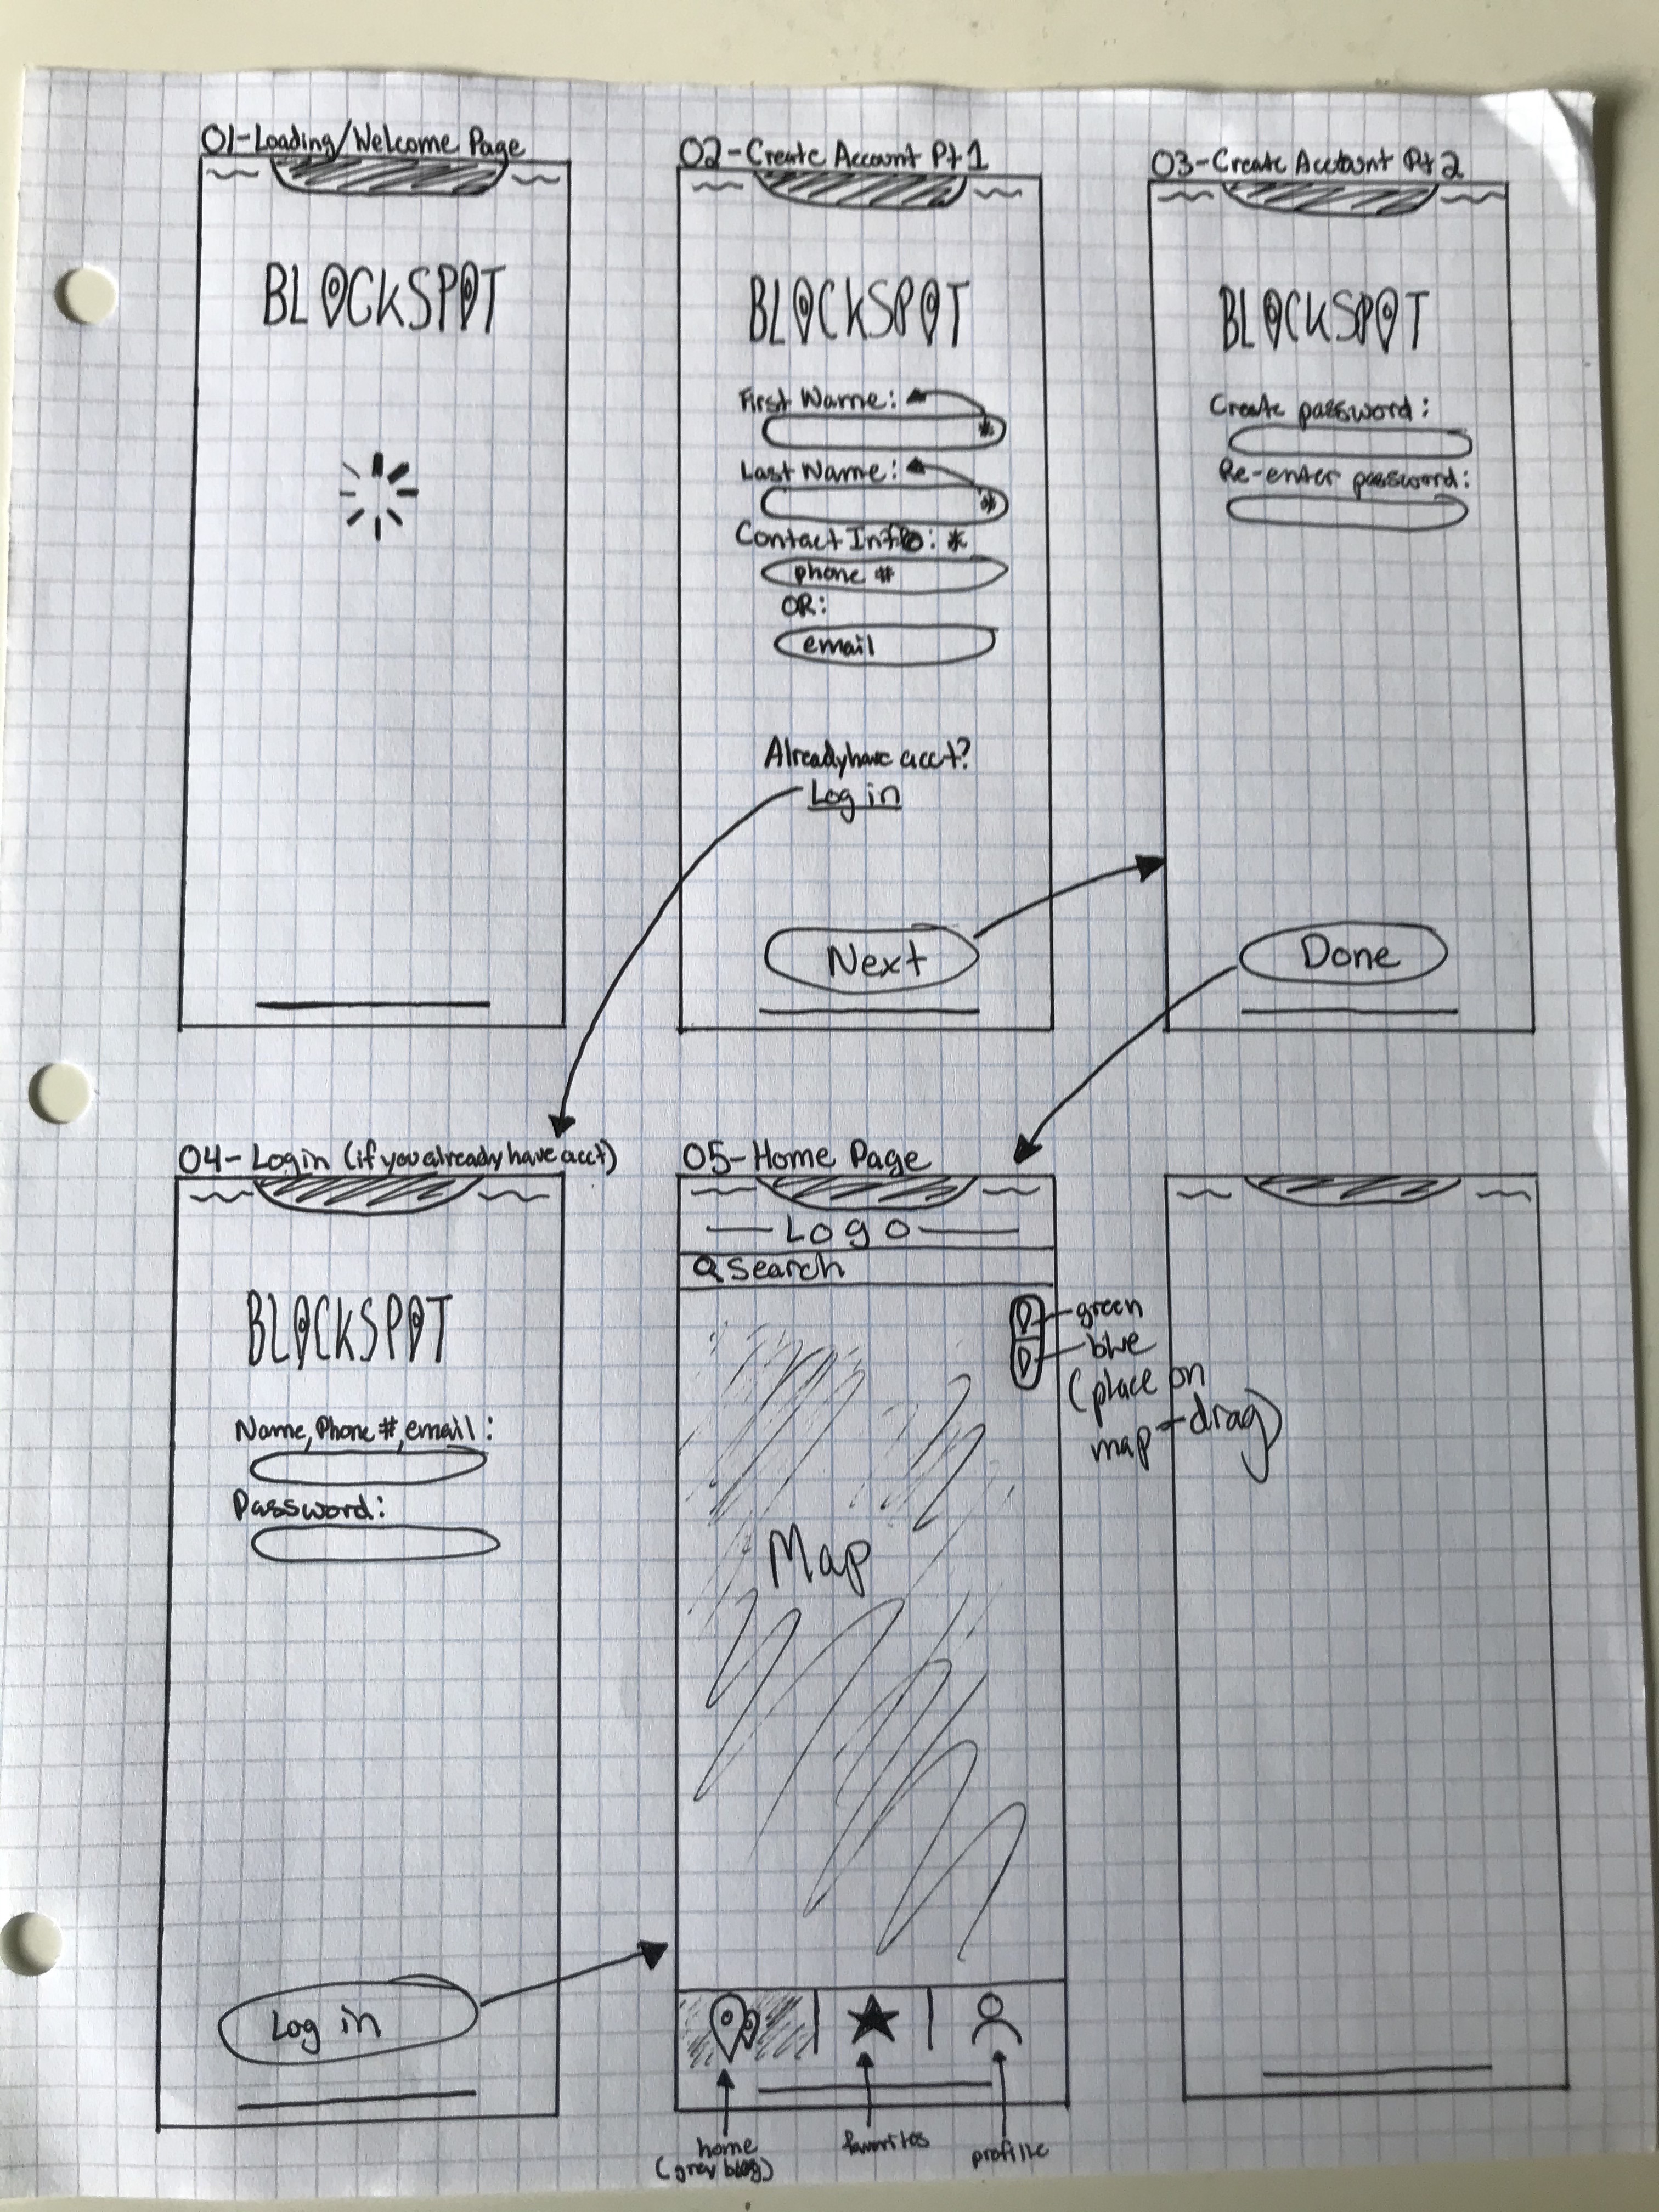 01-Loading/Welcome Page
BLOCKSPOT
02-Create Account Pt 1
BLOCKSPOT
First Name:
*
Last Name:
*
Contact Info: *
phone #
OR:
email
Already have acct?
Log in
Next
03-Create Account Pt 2
BLOCKSPOT
Create password:
Re-enter password:
Done
04-Login (if you already have acct)
BLOCKSPOT
Name, Phone #, email:
Password:
Log in
05-Home Page
Logo
Search
green
blue
(place on
map - drag)
Map
home
(grey
favorites
profile